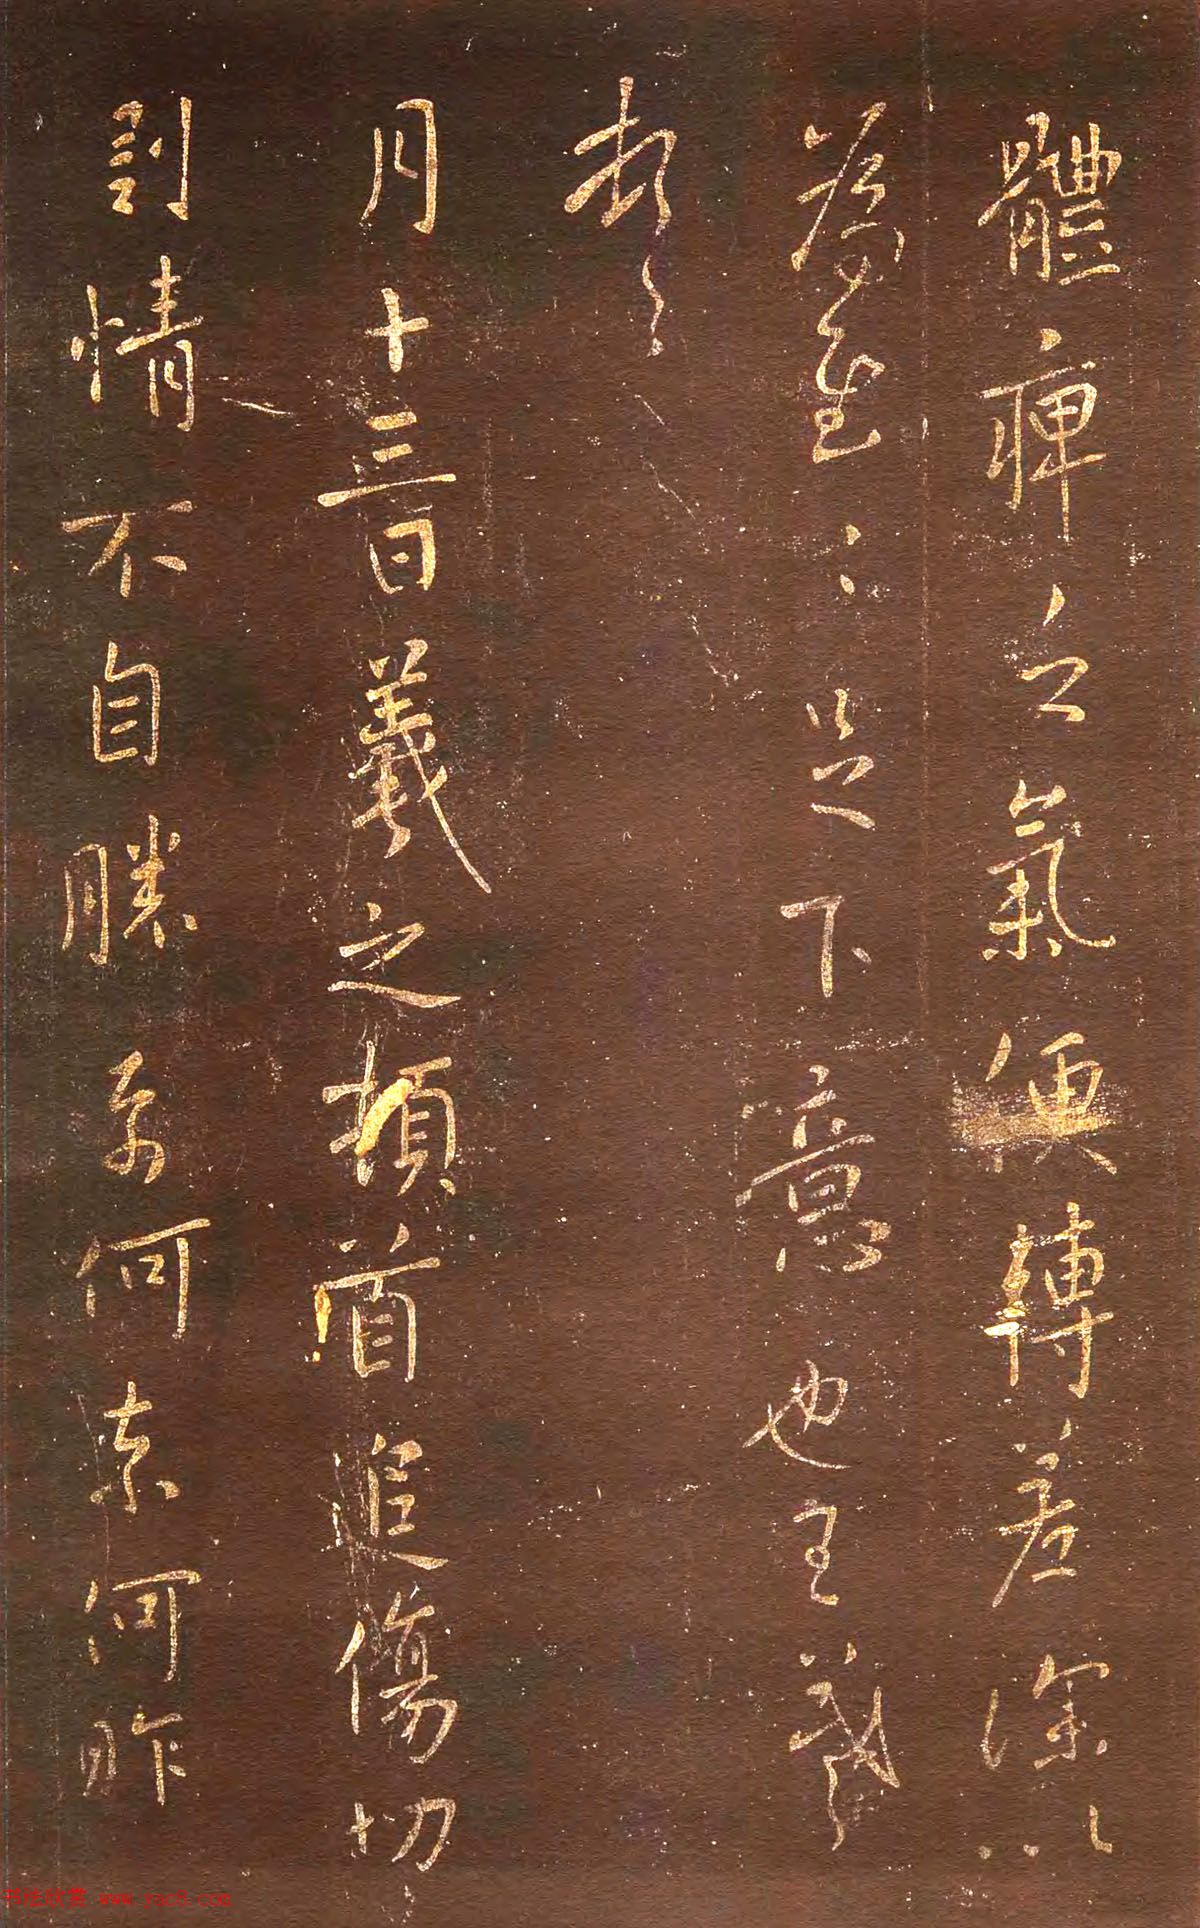 體痺之氣便轉差深以
為慰〻足下意也王羲
頓〻
月十三日羲之頓首追傷切
割情不自勝奈何奈何昨
书法欣赏 www.yac8.com